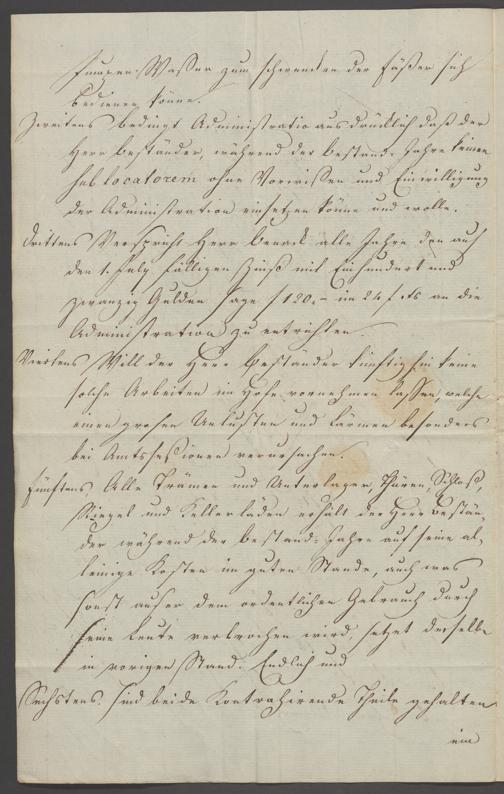 Pumpen-Wasser zum schwenken der Fäßer sich
bedienen könne.
Zweitens bedingt Administratio ausdrücklich daß der
Herr Beständer, während der Bestands-Jahre keinen
Sublocatorem ohne Vorwissen und Einwilligung
der Administration einsetzen könne und wolle.
Drittens Verspricht Herr Benack alle Jahre den auf
den 1. July fälligen Zinß mit Einhundert und
zwanzig Gulden sage f 120.- im 24 f. fs an die
Administration zu entrichten.
Viertens Will der Herr Beständer künftighin keine
solche Arbeiten im Hofe vornehmen lassen, welche
einen grosen Unlusten und Lärmen besonders
bei Amtssessionen verursachen.
Fünftens Alle Trämen und Unterlager, Thüren, Schloß,
Riegel und Kellerläden erhält der Herr Bestän-
der während der Bestands-Jahre auf seine al-
leinige Kosten im guten Stande, auch was
sonst auser dem ordentlichen Gebrauch durch
seine Leute verbrochen wird, setzet derselbe
in vorigen Stand. Endlich und
Sechstens sind beide Kontrahirende Theile gehalten
ein